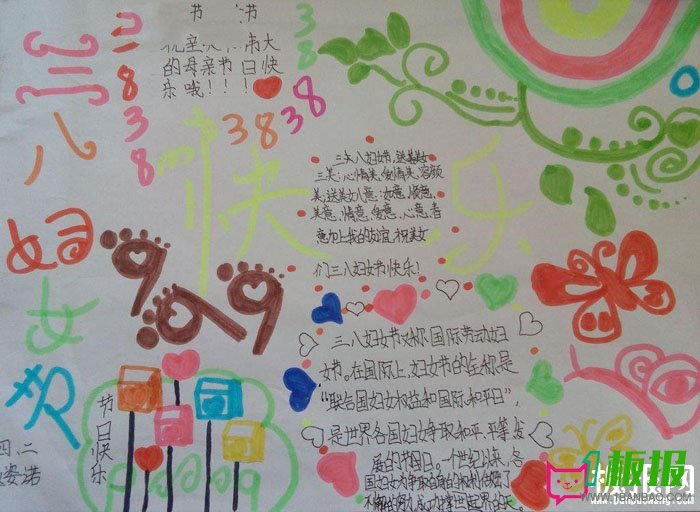 节 节
的母亲节日快
乐哦！！！
38
38
38
38
三八妇女节
快乐
三八妇女节，送美女
三美：心情美，爱情美，容颜
美；送美女八意：如意，顺意，
美意，情意，爱意，心意，春
意加上我的友谊，祝美女
们三八妇女节快乐！
三八妇女节又称国际劳动妇
女节。在国际上，妇女节的全称是
“联合国妇女权益和国际和平日”，
是世界各国妇女争取和平、平等、发
展的节日。一个世纪以来，各
国妇女为争取自身的权利做了
节日快乐
四、二
安诺
板报网
WWW.1BANBAO.COM